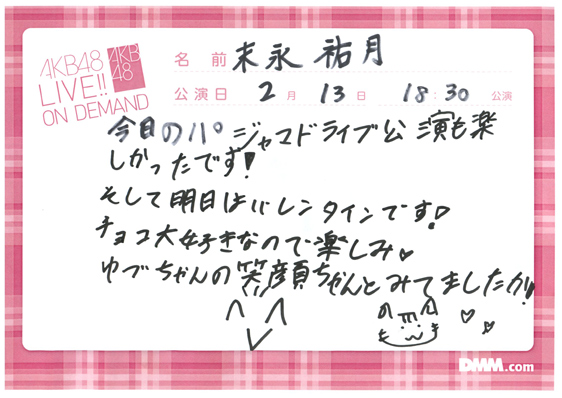 AKB48
LIVE!!
ON DEMAND
AKB
48
名前 末永 祐月
公演日 2月 13日 18:30 公演
今日のパジャマドライブ公演も楽
しかったです!
そして明日はバレンタインです!
チョコ大好きなので楽しみ
ゆづちゃんの笑顔ちゃんとみてましたか!!
DMM.com